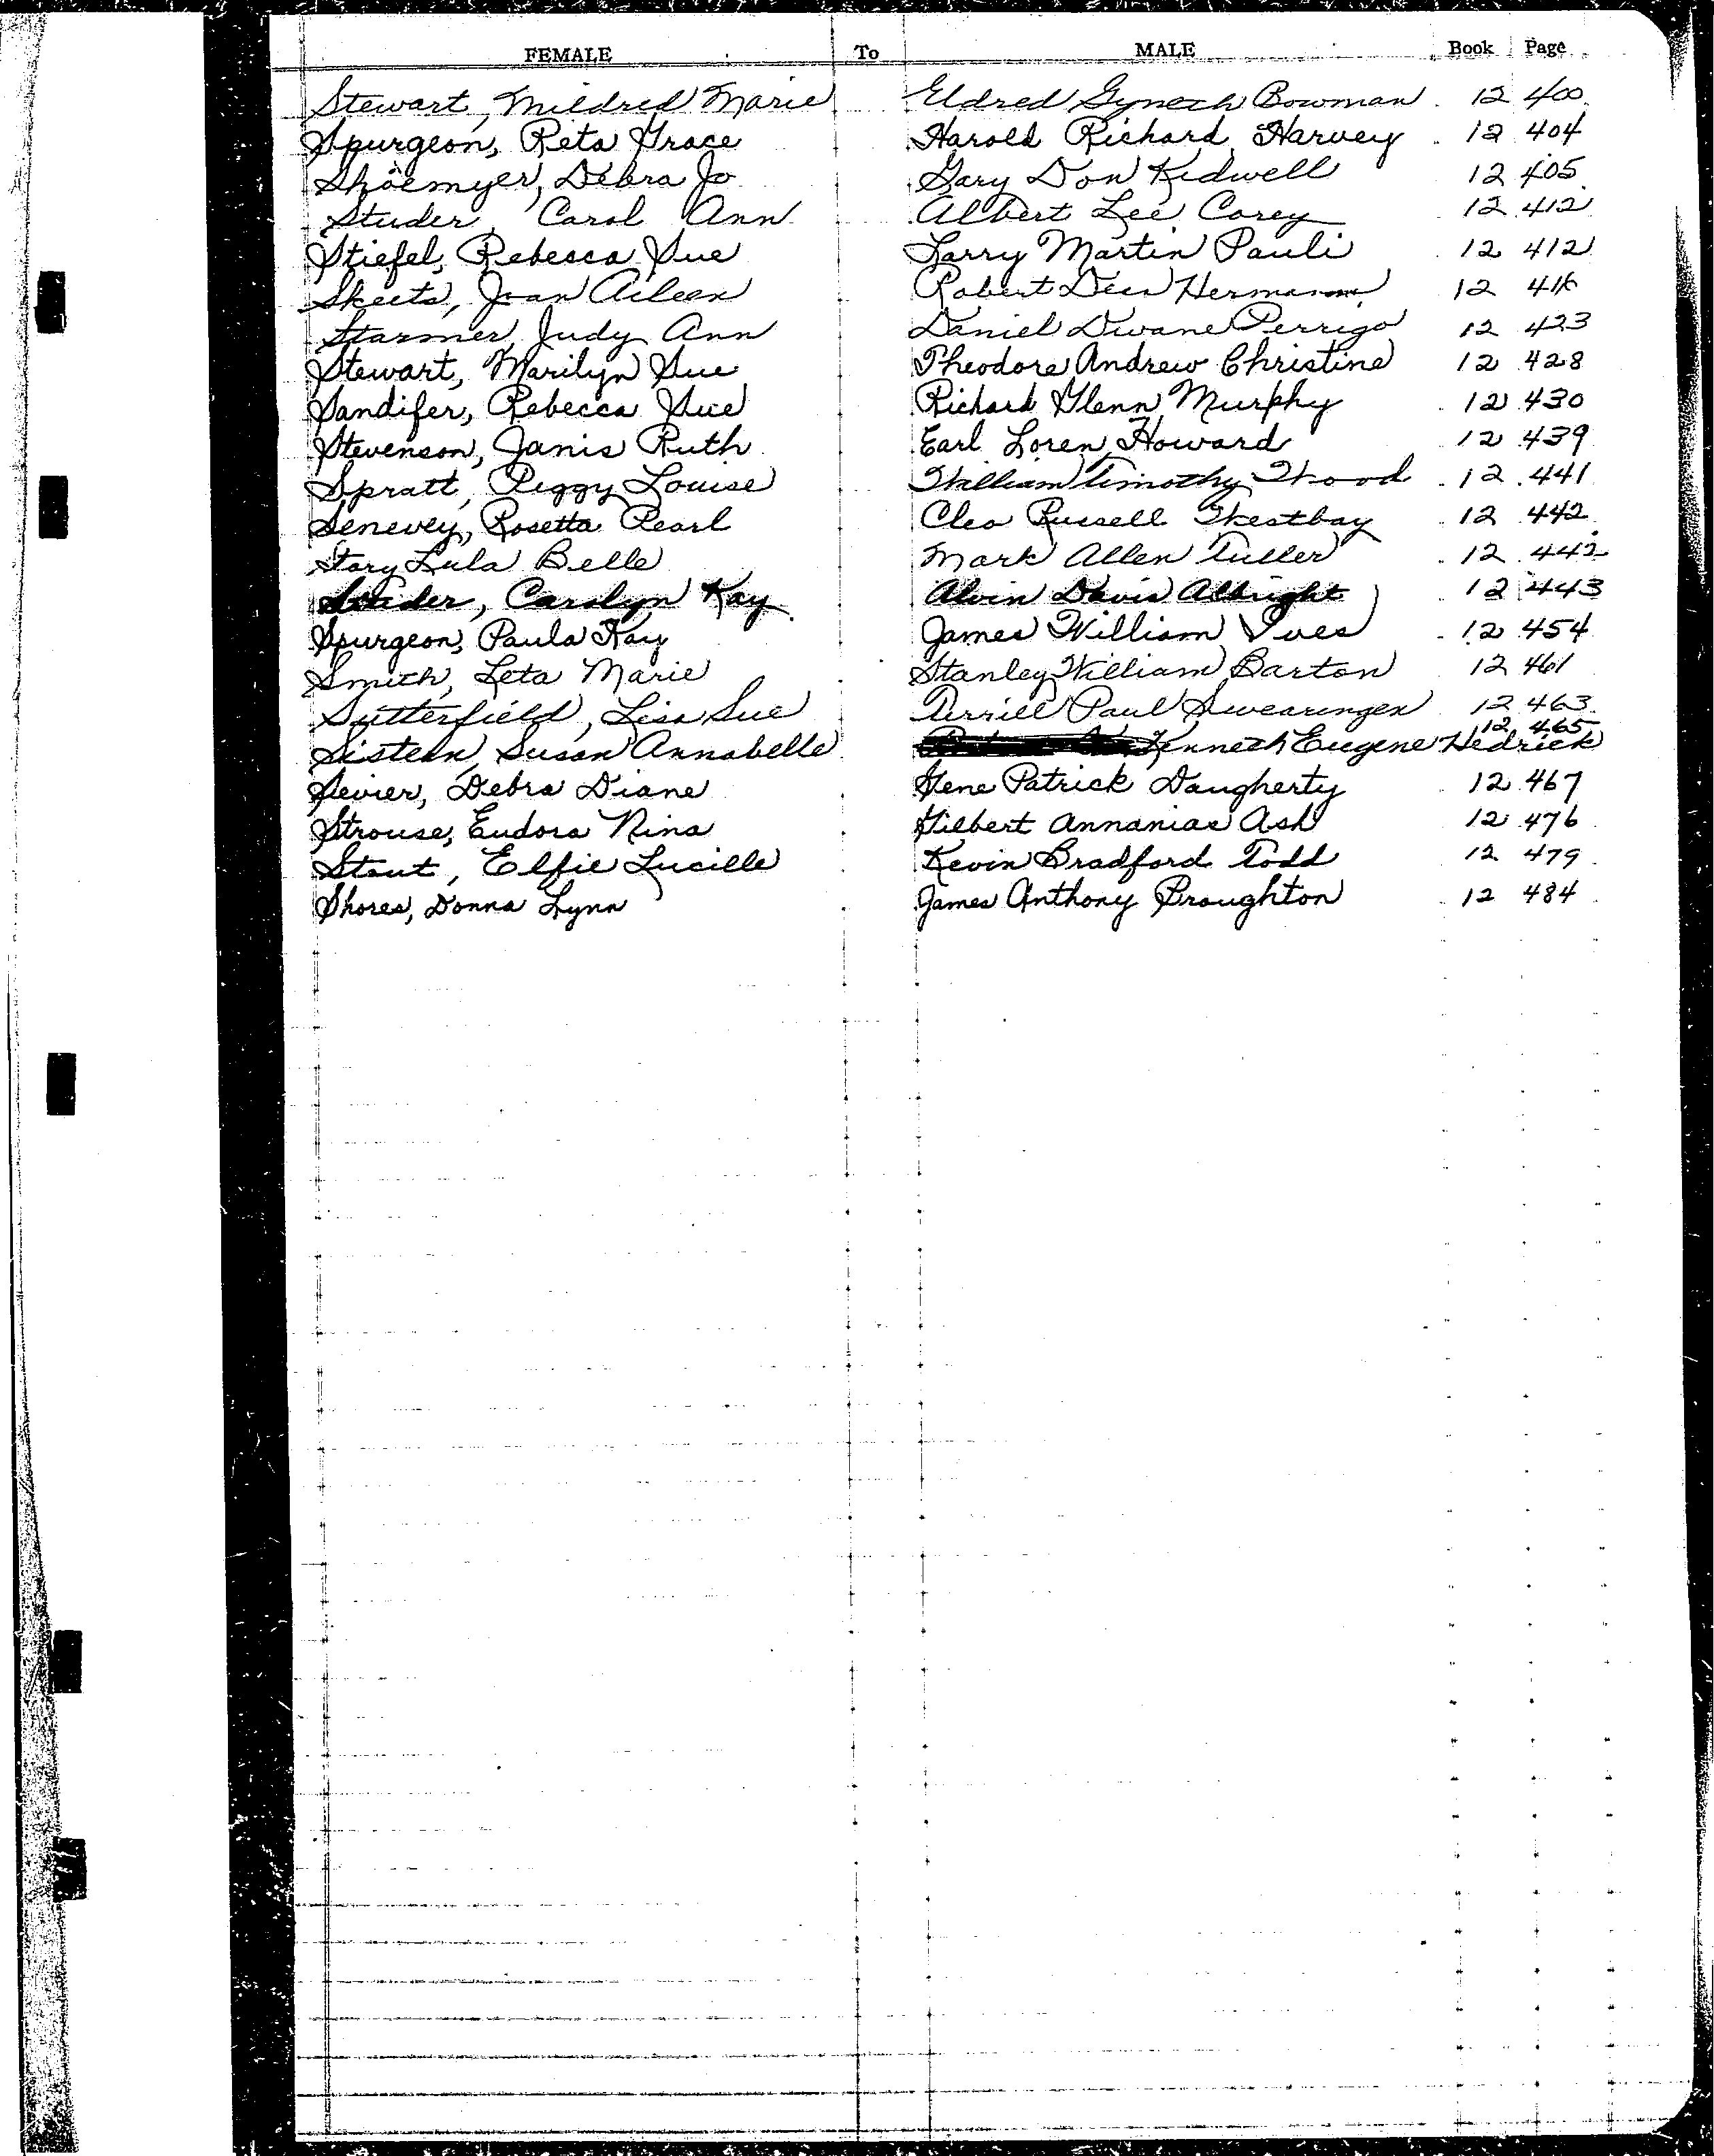 FEMALE To MALE Book Page
Stewart, Mildred Marie Eldred Bowman 12 400
Spurgeon, Reta Grace Harold Richard Harvey 12 404
Shoemyer, Debra Jo Gary Don Kidwell 12 405
Studer, Carol Ann Albert Lee Corey 12 412
Stiefel, Rebecca Sue Larry Martin Pauli 12 412
Skeets, Joan Aileen Robert Hermann 12
Starmer, Judy Ann Daniel Dwane Perrigo 12 423
Stewart, Marilyn Sue Theodore Andrew Christine 12 428
Sandifer, Rebecca Sue Richard Glenn Murphy 12 430
Stevenson, Janis Ruth Earl Loren Howard 12 439
Spratt, Peggy Louise William Timothy Wood 12 441
Senevey, Rosetta Pearl Cleo Russell Westbay 12 442
Story Lula Belle Mark Allen Tuller 12 442
Studer, Carolyn Kay Alvin Davis Albright 12 443
Spurgeon, Paula Kay James William Ives 12 454
Smith, Leta Marie Stanley William Barton 12 461
Sutterfield, Lisa Sue Terrill Paul Swearingen 12 463
Sistean, Susan Annabelle Kenneth Eugene Hedrick 12 465
Sevier, Debra Diane Gene Patrick Daugherty 12 467
Strouse, Eudora Nina Gilbert Annanias Ash 12 476
Stout, Elfie Lucille Kevin Bradford Todd 12 479
Shores, Donna Lynn James Anthony Broughton 12 484